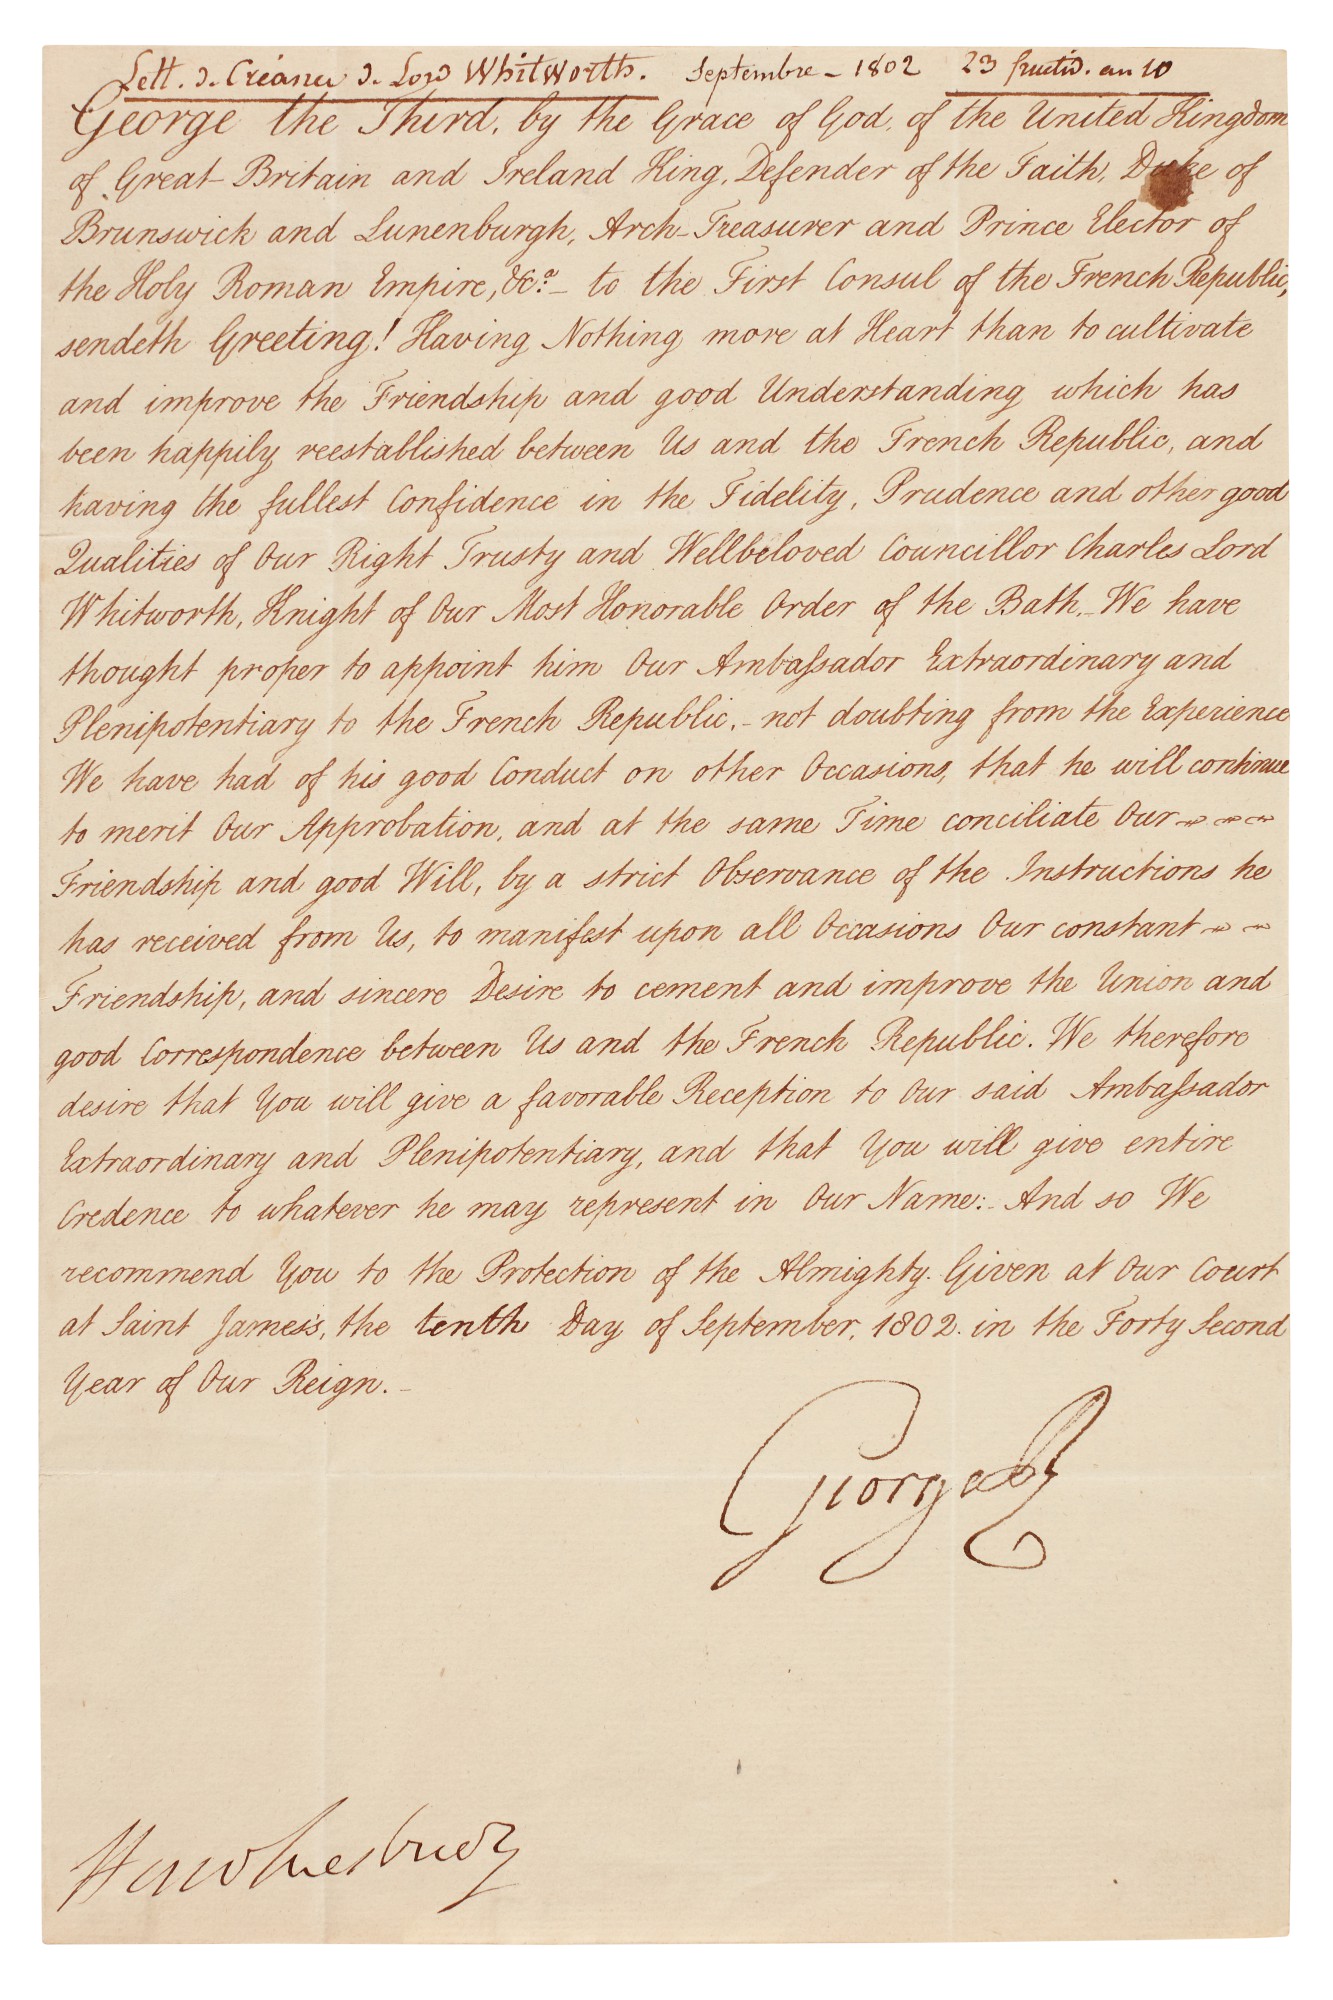 Lett. de Créance de Lord Whitworth. Septembre - 1802 23 fructid. an 10
George the Third, by the Grace of God, of the United Kingdom
of Great Britain and Ireland King, Defender of the Faith, Duke of
Brunswick and Lunenburgh, Arch-Treasurer and Prince Elector of
the Holy Roman Empire, &c.a - to the First Consul of the French Republic,
sendeth Greeting! Having Nothing more at Heart than to cultivate
and improve the Friendship and good Understanding which has
been happily reestablished between Us and the French Republic, and
having the fullest Confidence in the Fidelity, Prudence and other good
Qualities of Our Right Trusty and Wellbeloved Councillor Charles Lord
Whitworth, Knight of Our Most Honorable Order of the Bath, We have
thought proper to appoint him Our Ambaſsador Extraordinary and
Plenipotentiary to the French Republic, - not doubting from the Experience
We have had of his good Conduct on other Occasions, that he will continue
to merit Our Approbation, and at the same Time conciliate Our
Friendship and good Will, by a strict Observance of the Instructions he
has received from Us, to manifest upon all Occasions Our constant
Friendship, and sincere Desire to cement and improve the Union and
good Correspondence between Us and the French Republic. We therefore
desire that You will give a favorable Reception to Our said Ambaſsador
Extraordinary and Plenipotentiary, and that You will give entire
Credence to whatever he may represent in Our Name: - And so We
recommend You to the Protection of the Almighty. Given at Our Court
at Saint James's, the tenth Day of September, 1802. in the Forty Second
Year of Our Reign. -
George R
Hawkesbury